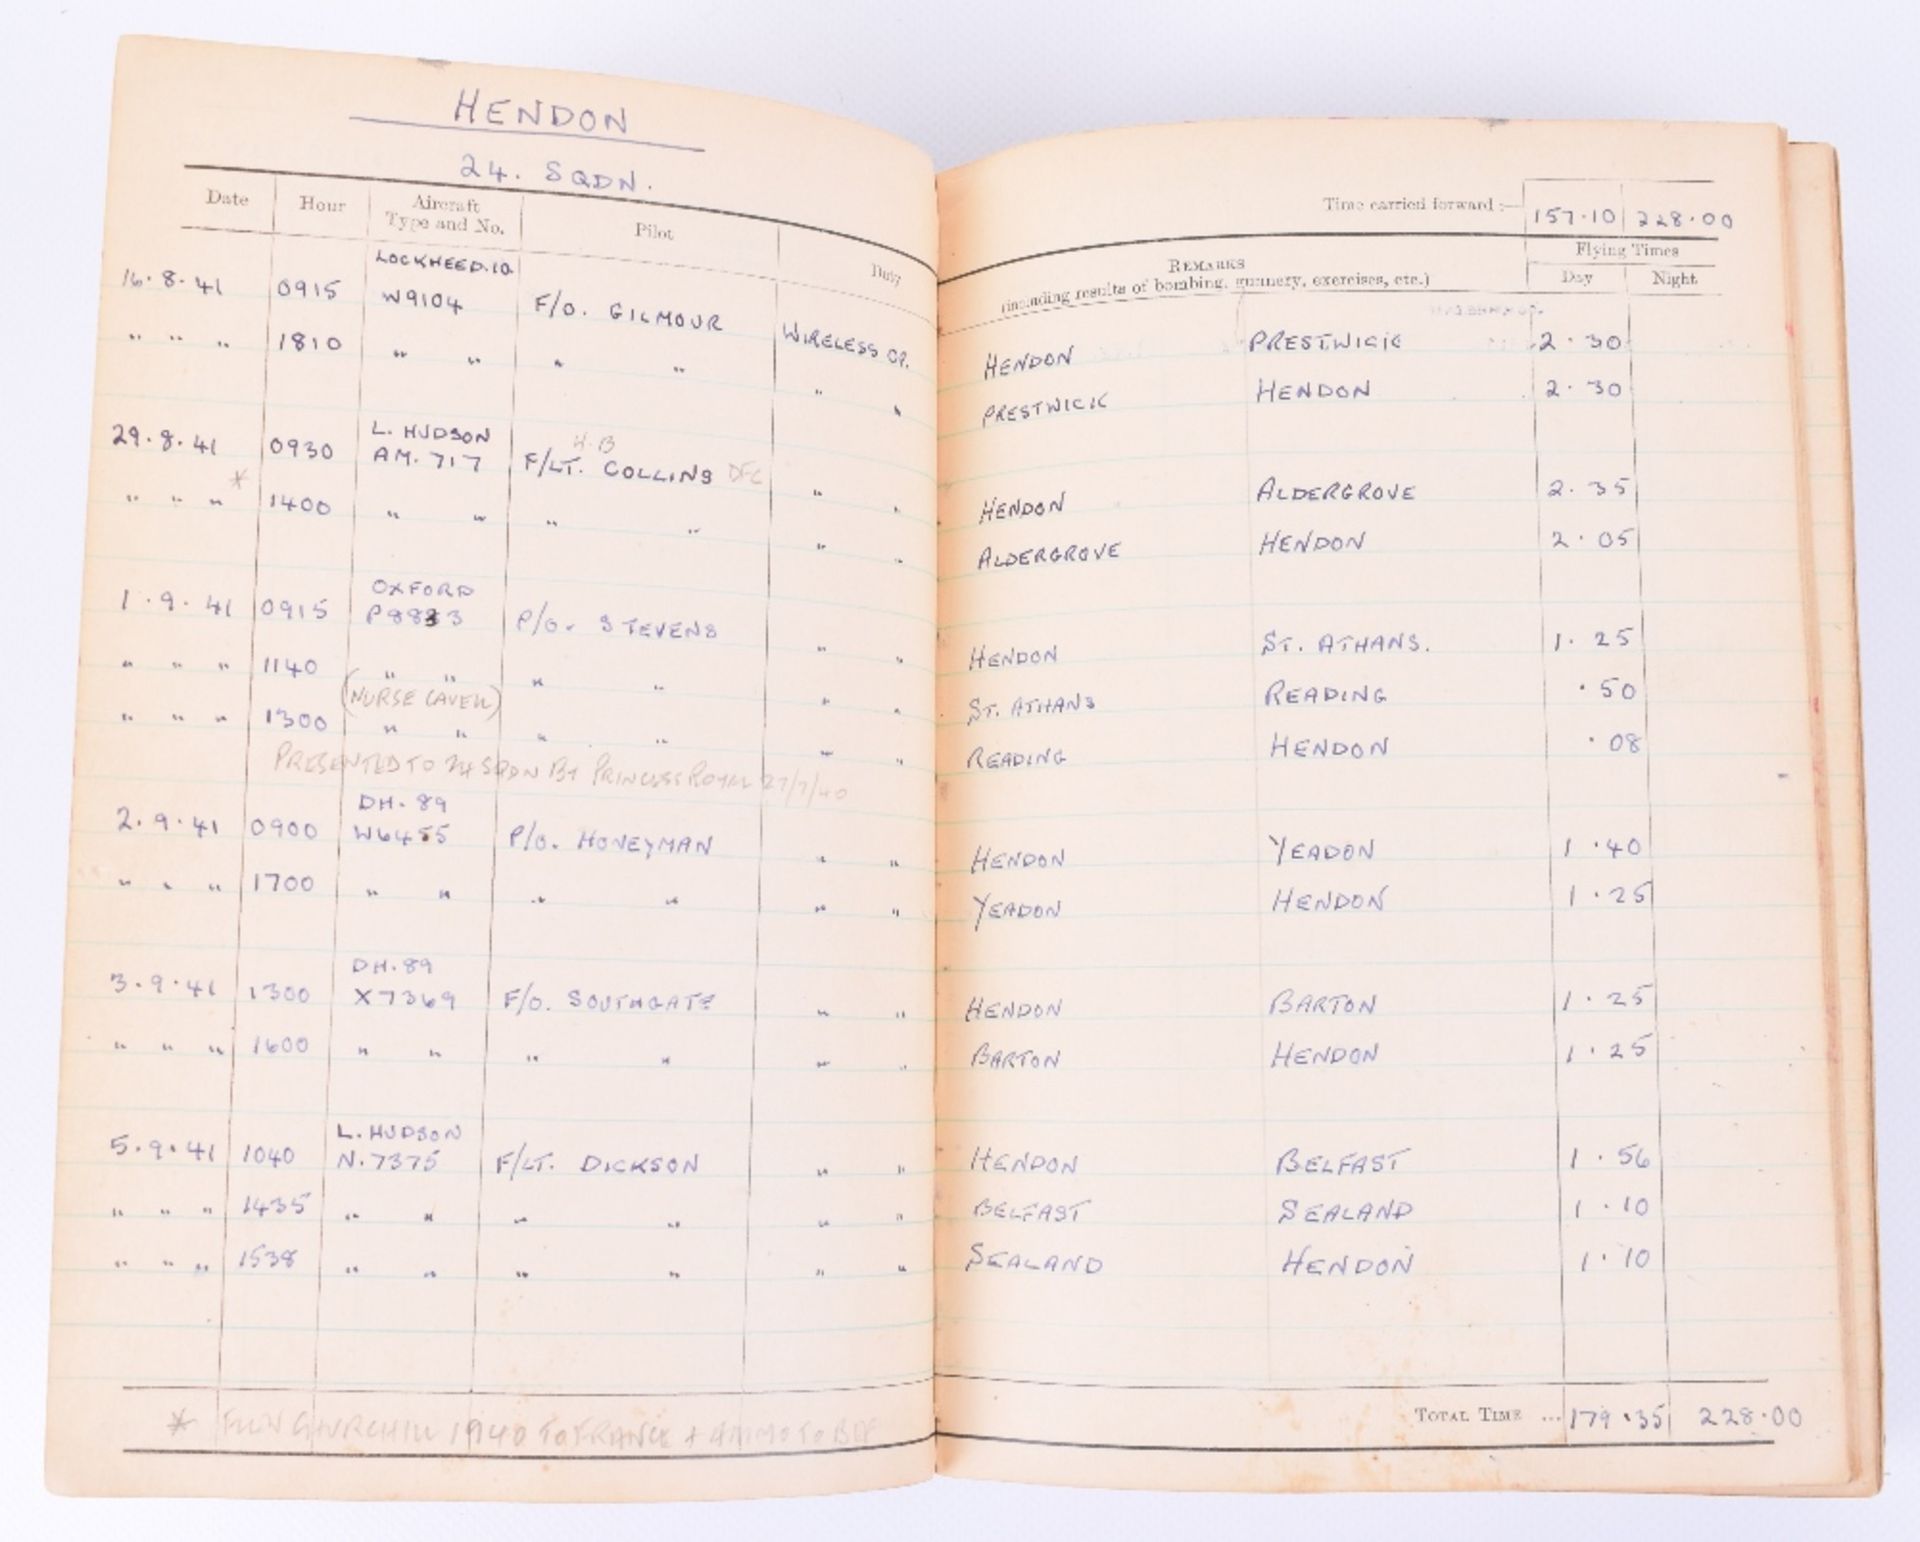 HENDON
24. SQDN.
Date Hour Aircraft Type and No. Pilot Duty
LOCKHEED.10
16.8.41 0915 W9104 F/O. GILMOUR WIRELESS OP.
" " " 1810 " " " " " "
L. HUDSON H.B
29.8.41 0930 AM.717 F/LT. COLLINS DFC " "
" " " * 1400 " " " " " "
OXFORD
1.9.41 0915 P8833 P/O. STEVENS " "
" " " 1140 " " " " " "
(NURSE CAVELL)
" " " 1300 " " " " " "
PRESENTED TO 24 SQDN BY PRINCESS ROYAL 27/7/40
DH.89
2.9.41 0900 W6455 P/O. HONEYMAN " "
" " " 1700 " " " " " "
DH.89
3.9.41 1300 X7369 F/O. SOUTHGATE " "
" " " 1600 " " " " " "
L. HUDSON
5.9.41 1040 N.7375 F/LT. DICKSON " "
" " " 1435 " " " " " "
" " " 1538 " " " " " "
* FLEW CHURCHILL 1940 TO FRANCE + AMMO TO BEF
Time carried forward :— 157.10 228.00
REMARKS Flying Times
(including results of bombing, gunnery, exercises, etc.) Day Night
HENDON PRESTWICK 2.30
PRESTWICK HENDON 2.30
HENDON ALDERGROVE 2.35
ALDERGROVE HENDON 2.05
HENDON ST. ATHANS. 1.25
ST. ATHANS READING .50
READING HENDON .08
HENDON YEADON 1.40
YEADON HENDON 1.25
HENDON BARTON 1.25
BARTON HENDON 1.25
HENDON BELFAST 1.56
BELFAST SEALAND 1.10
SEALAND HENDON 1.10
TOTAL TIME ... 179.35 228.00